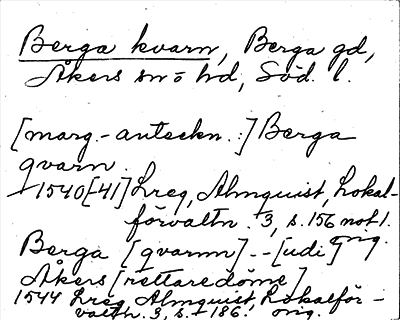 Berga kvarn, Berga gd,
Åkers sn o hd, Söd. l.
[marg.-anteckn.:] Berga
qvarn
1540[41] Lreg, Almquist, Lokal-
förvaltn. 3, s. 156 not 1.
orig.
Berga [qvarnn] - - [udi]
Åkers [rettaredöme]
1544 Lreg Almquist, Lokalför-
valtn. 3, s. 186. orig.